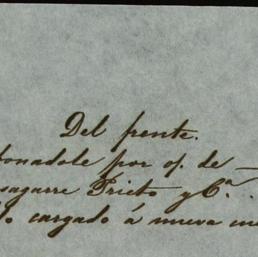 Del frente.
onadole por of. de
sagarre Prieto y Cª
do cargado á nueva